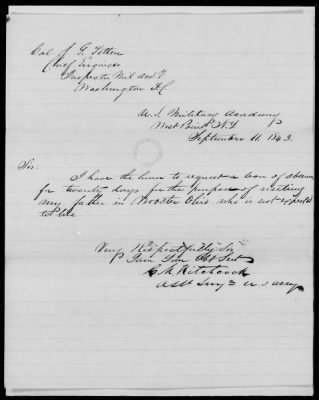 Col J. G. Totten
Chief Engineer
Inspector Mil Acd'y
Washington D.C
U.S. Military Academy
West Point N.Y
September 11. 1843.
Sir.
I have the honor to request a leave of absence
for twenty days for the purpose of visiting
my father in Wooster Ohio, who is not expected
to live
Very Respectfully Sir
Your Obt Svt
C. M. Hitchcock
Asst Surgn U.S. Army